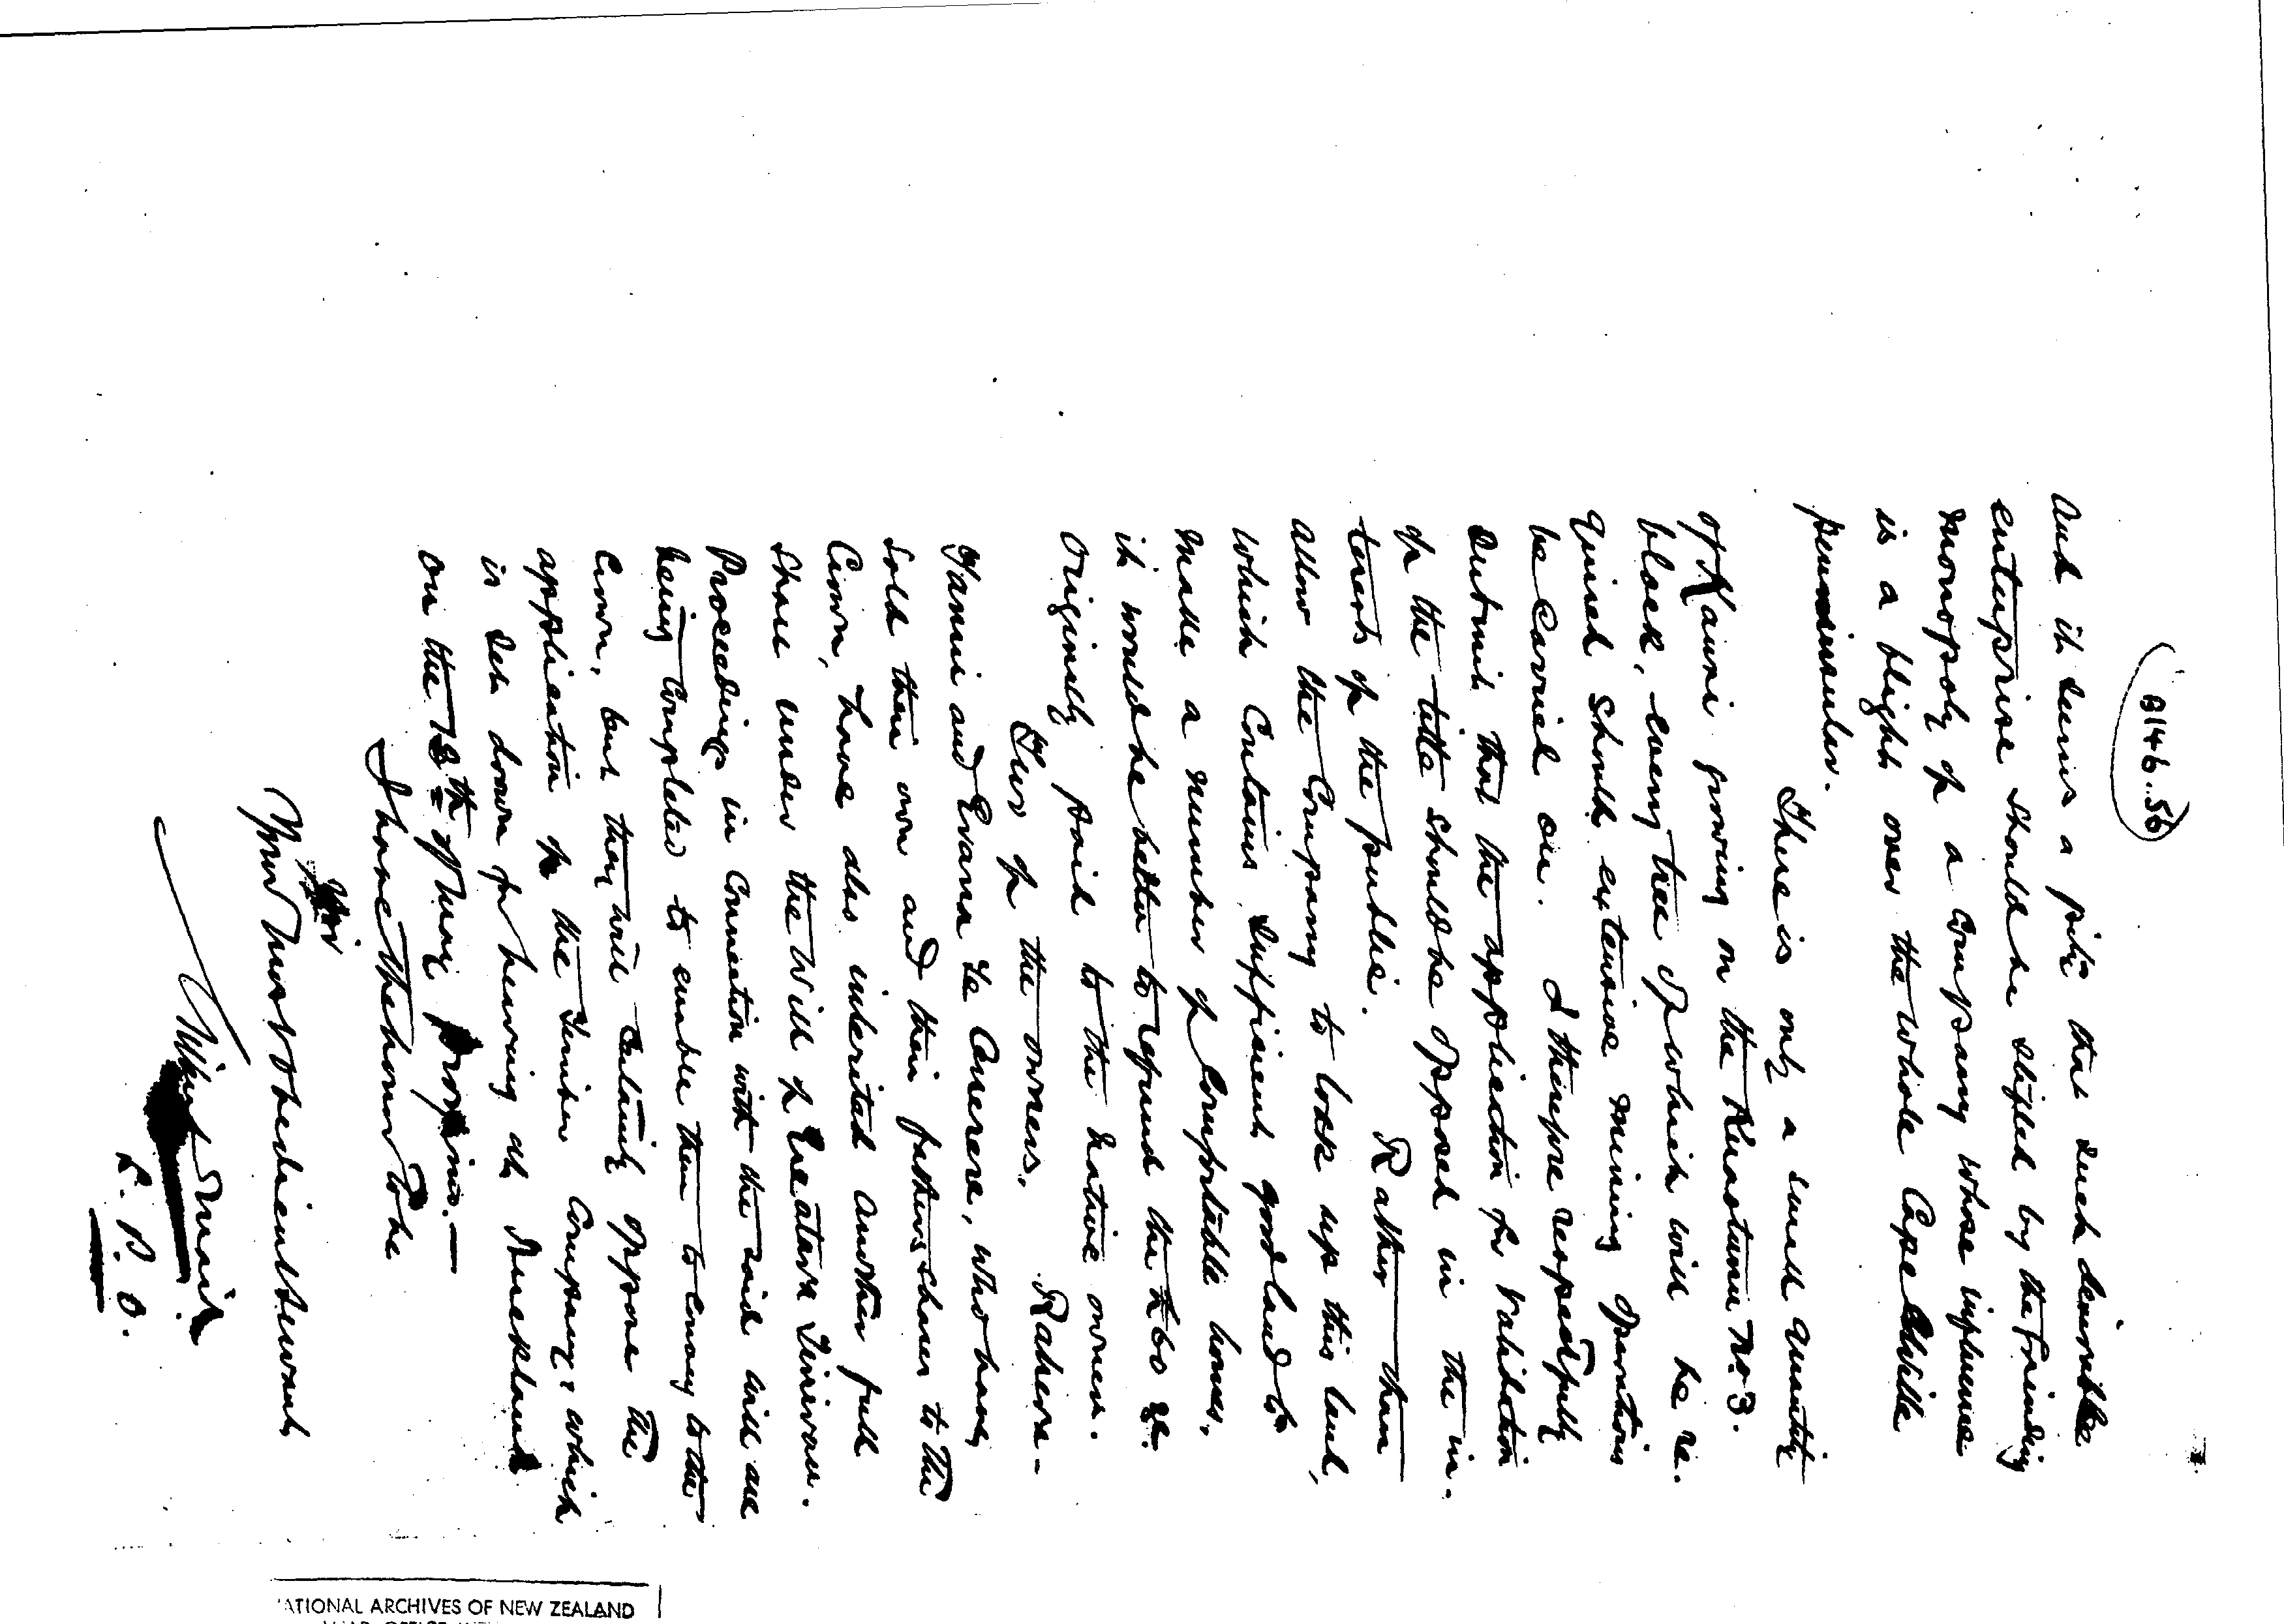 B146.56
And it seems a pity that such desirable
enterprise should be stifled by the grinding
monopoly of a company whose influence
is a blight over the whole Cape Colville
peninsular.
There is only a small quantity
of Kauri growing on the Kuaotunu No 3.
block, every tree of which will be re-
quired should extensive mining operations
be carried on. I therefore respectfully
submit that the application for validation
of the title should be opposed in the in-
terests of the public. Rather than
allow the Company to lock up this land,
which contains sufficient good land to
make a number of comfortable homes,
it would be better to refund the £60
originally paid to the native owners.
Two of the owners, Rahera
Tanui and te who have
sold their own and their fathers shares to the
Crown, have also inherited another full
share under the will of
Proceedings in connection with the said will are
being completed to enable them to convey to the
Crown, but they will certainly oppose the
application of the Timber Company, which
is set down for hearing at Auckland
on the 13th of proximo.—
I have the honor to be
Sir
Your most obedient servant
L. P. O.
NATIONAL ARCHIVES OF NEW ZEALAND